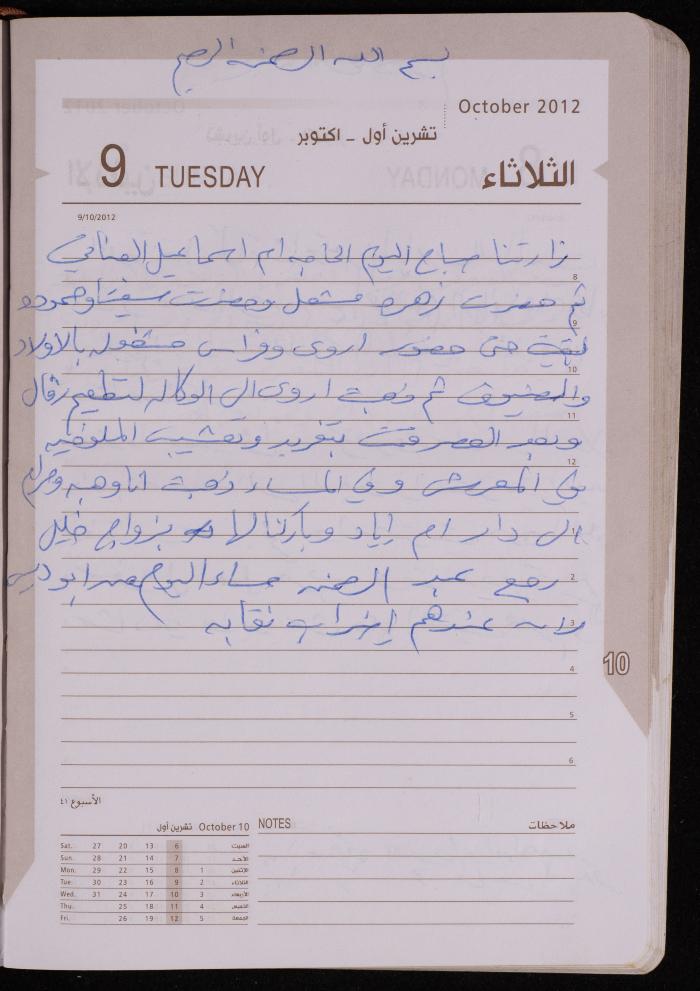 بسم الله الرحمن الرحيم
October 2012
تشرين أول - اكتوبر
9 TUESDAY الثلاثاء
9/10/2012
زارتنا صباح اليوم الحاجه ام اسماعيل
8
ثم حضرت زهره مشعل وحضرت
9
بقيت حتى حضور اروى وفراس مشغوله بالاولاد
10
والضيوف ثم ذهبت اروى الى الوكاله لتطعيم
11
وبعد العصر قمت بتفريد وتعشيب الملوخيه
12
في المعرش وفي المساء ذهبت انا وهبه ومرام
1
الى دار ام اياد وباركنا لها بزواج خليل
2
رجع عبد الرحمن مساء اليوم من ابو ديس
3
لانه عندهم إضراب نقابه
4
10
5
6
الأسبوع ٤١
October 10 تشرين أول
Sat. 27 20 13 6 السبت
Sun. 28 21 14 7 الأحد
Mon. 29 22 15 8 1 الإثنين
Tue. 30 23 16 9 2 الثلاثاء
Wed. 31 24 17 10 3 الأربعاء
Thu. 25 18 11 4 الخميس
Fri. 26 19 12 5 الجمعة
NOTES ملاحظات